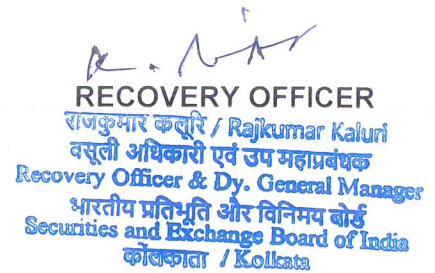 RECOVERY OFFICER
राजकुमार कलूरि / Rajkumar Kaluri
वसूली अधिकारी एवं उप महाप्रबंधक
Recovery Officer & Dy. General Manager
भारतीय प्रतिभूति और विनिमय बोर्ड
Securities and Exchange Board of India
कोलकाता / Kolkata